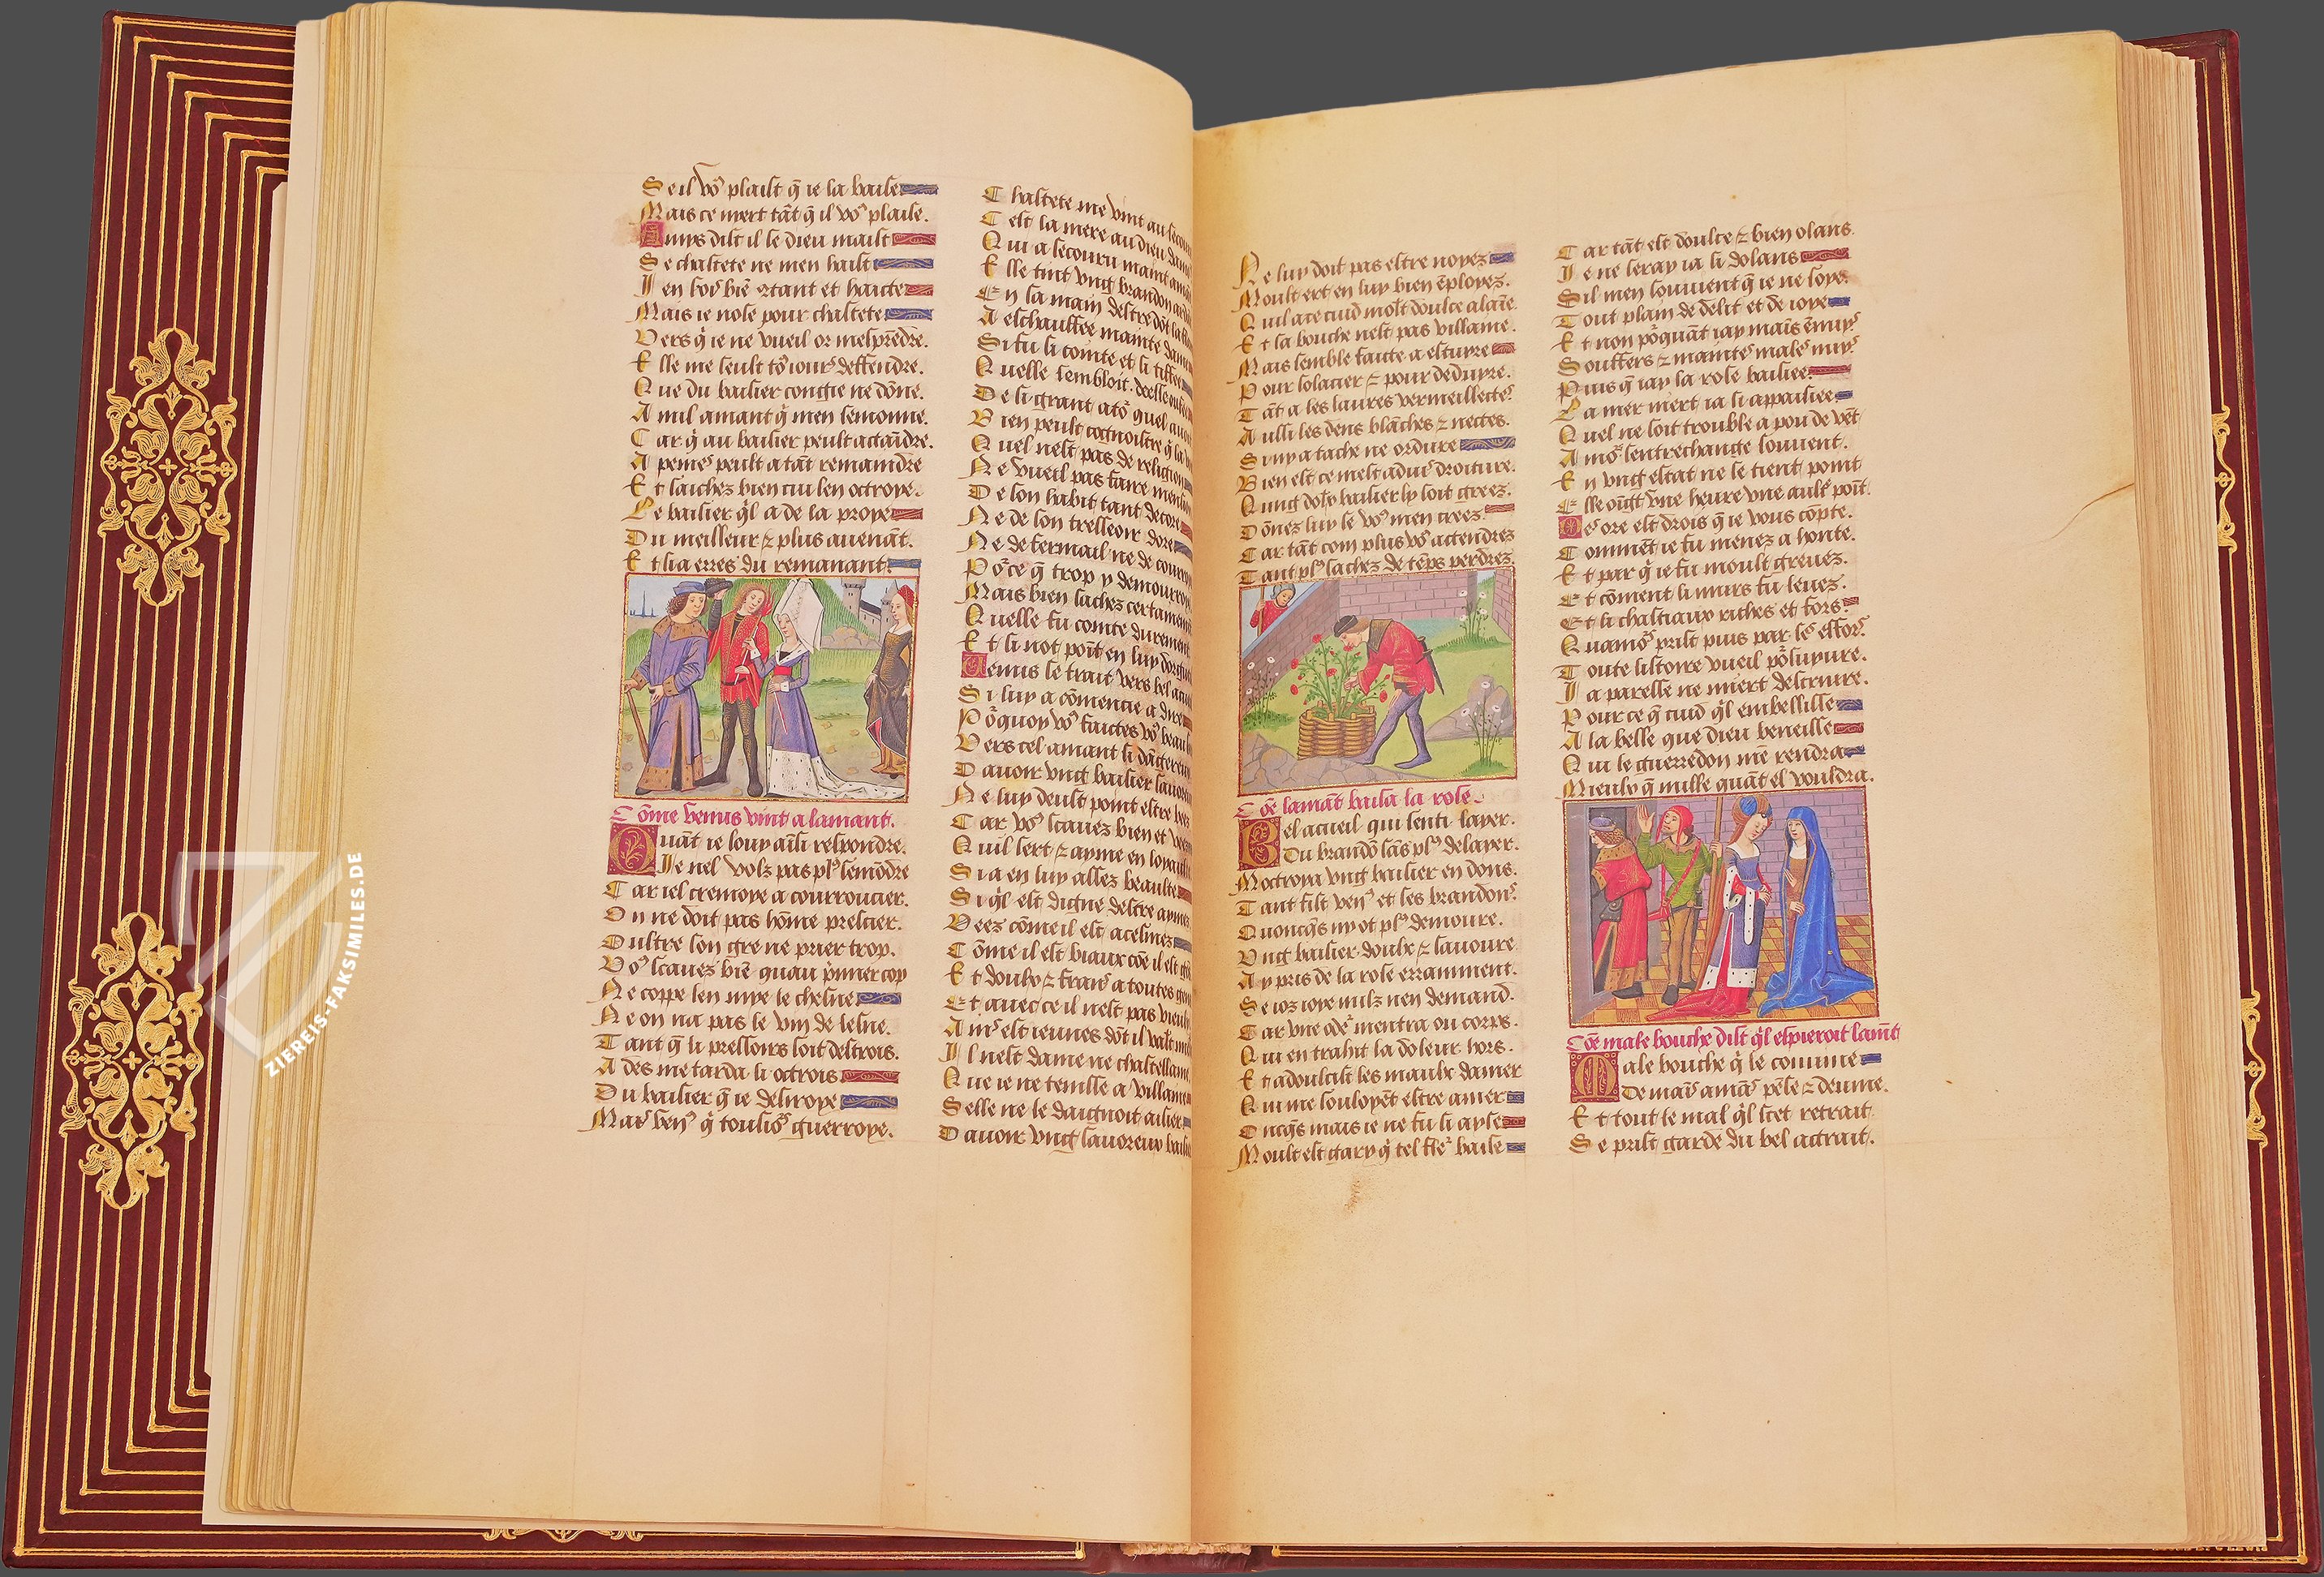 Se il vo9 plaist q̃ ie la baise
Mais ce niert tãt q̃ il vo9 plaise.
Amys dist il se dieu maist
Se chastete ne men haist
Mais ie nose pour chastete
Vers q̃ ie ne vueil or mesprẽdre.
Elle me seult to9iours deffendre.
Que du baisier congie ne dõne.
A nul amant q̃ men semonne.
Car q̃ au baisier peult actaĩdre.
A peines peult a tãt remaindre
Et saichez bien cui len octroye.
Le baisier q̃l a de la proye
Du meilleur & plus auenãt.
Et si a erres du remanant.
Cõme venus vint a lamant.
Quãt ie louy aĩsi respondre.
Je nel volz pas pl9 semõdre
Car iel cremoye a courroucier.
On ne doit pas hõme presser.
Oultre son gre ne prier trop.
Vo9 scauez biẽ quau p̃mier cop
Ne coppe len mye le chesne
Ne on na pas le vin de lesne.
Tant q̃ li pressoirs soit destrois.
Ades me tarda li octrois
Du baisier q̃ ie desiroye
Mais ven9 q̃ tousio9s guerroye.
Chastete me vint au secours
Cest la mere au dieu damours
Qui a secouru maint amant
Elle tint vng brandon
En sa main destre dõt la
A eschauffee mainte dame
Si fu si cointe et si tiffee
Quelle sembloit deesse ou fee
De si grant ato9 quel auoit
Bien peult cognoistre q̃ la
Quel nest pas de religion
Ne vueil pas faire mencion
De son habit tant decore
Ne de son tressoir dore
Ne de fermail ne de courroye
Po9ce q̃ trop y demourroye
Mais bien sachez certainement
Quelle fu cointe durement
Et si not poĩt en luy dorgueil
Venus se trait vers bel acueil
Si luy a cõmencie a dire
Po9quoy vo9 faictes vo9 beau
Vers cel amant si dãgereux
Dauoir vng baisier sauoureux
Ne luy deust point estre
Car vo9 scauez bien et veez
Quil sert & ayme en loyaulte
Si a en luy assez beaulte
Si q̃l est digne destre aymez
Veez cõme il est acesmez
Cõme il est biaux cõe il est
Et doulx & frans a toutes gens
Et auec ce il nest pas vieulx
Ains est ieunes dõt il vault mieulx
Il nest dame ne chastellaine
Que ie ne tenisse a villaine
Selle ne le daignoit aisier
Dauoir vng sauoreux baisier
Ne luy doit pas estre noyez
Moult ert en luy bien ẽployez.
Quil a ce cuid molt doulce alaĩe.
Et sa bouche nest pas villaine.
Mais semble faicte a estuyre
Pour solacier & pour deduyre.
Tãt a les laures vermeillectes
Aussi les dens blãches & nectes.
Si ny a tache ne ordure
Bien est ce mest aduis droiture.
Qung doulx baisier ly soit greez.
Dõnez luy se vo9 men creez.
Car tãt com plus vo9 actendrez
Tant pl9 sachez de tẽps perdrez
Cõe lamãt baisa la rose.
Bel acueil qui senti layer.
Du brandõ sãs pl9 delayer.
Moctroya vng baisier en dons.
Tant fist ven9 et ses brandons
Quoncq̃s ny ot pl9 demoure.
Vng baisier doulx & sauoure
Ay pris de la rose erramment.
Se ioz ioye nulz nen demand.
Car vne ode9 mentra ou corps.
Qui en trahit la doleur hors.
Et adoulcist les maulx damer
Qui me souloyẽt estre amer
Oncq̃s mais ie ne fu si ayse
Moult est gary q̃ tel fle9 baise
Car tãt est doulce & bien olans.
Ie ne seray ia si dolans
Sil men souuient q̃ ie ne soye.
Tout plain de delit et de ioye
Et non po9quãt iay mais ẽnuys
Souffers & maintes males nuys
Puis q̃ iay la rose baisiee
La mer niert ia si appaisiee
Quel ne soit trouble a pou de vẽt
Amo9s sentrechange souuent.
En vng estat ne se tient point
Elle oingt vne heure vne aultre point.
Des ore est drois q̃ ie vous cõpte.
Commẽt ie fu menez a honte.
Et par q̃ ie fu moult greuez.
Et cõment li murs fu leuez.
Et li chastiaux riches et fors.
Quamo9s prist puis par ses effors.
Toute listoire vueil po9suyure.
Ia paresse ne miert destruire.
Pour ce q̃ cuid q̃l embellisse
A la belle que dieu beneisse
Qui le guerredon mẽ rendra
Mieulx q̃ nulle quãt el vouldra.
Cõe male bouche dist q̃l espieroit lamãt
Male bouche q̃ le couuine
De mais amãs pẽse & deuine.
Et tout le mal q̃l scet retrait.
Se prist garde du bel actrait.
ZIEREIS-FAKSIMILES.DE